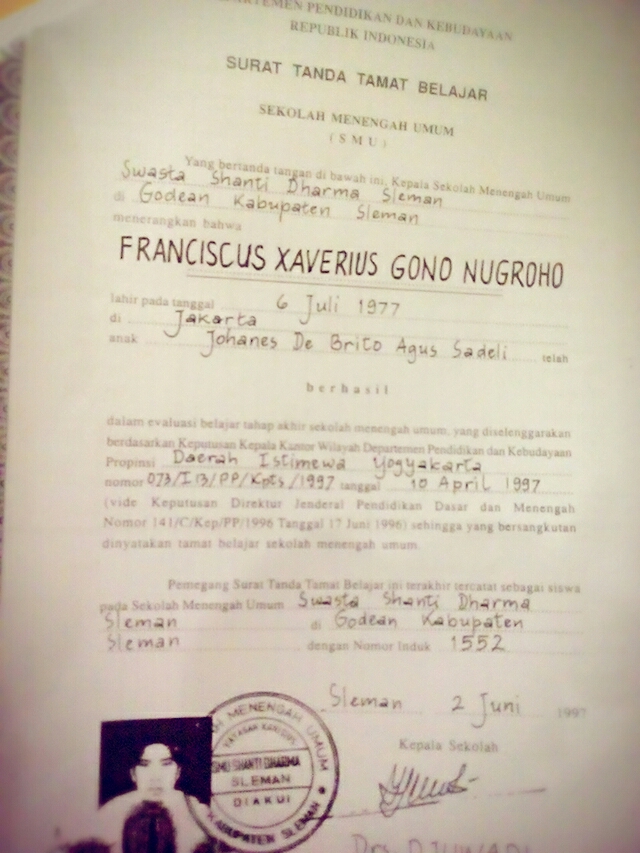 DEPARTEMEN PENDIDIKAN DAN KEBUDAYAAN
REPUBLIK INDONESIA
SURAT TANDA TAMAT BELAJAR
SEKOLAH MENENGAH UMUM
( SMU )
Yang bertanda tangan di bawah ini, Kepala Sekolah Menengah Umum
Swasta Shanti Dharma Sleman
di Godean Kabupaten Sleman
menerangkan bahwa
FRANCISCUS XAVERIUS GONO NUGROHO
lahir pada tanggal 6 Juli 1977
di Jakarta
anak Johanes De Brito Agus Sadeli telah
berhasil
dalam evaluasi belajar tahap akhir sekolah menengah umum, yang diselenggarakan
berdasarkan Keputusan Kepala Kantor Wilayah Departemen Pendidikan dan Kebudayaan
Propinsi Daerah Istimewa Yogyakarta
nomor 073/I13/PP/Kpts/1997 tanggal 10 April 1997
(vide Keputusan Direktur Jenderal Pendidikan Dasar dan Menengah
Nomor 141/C/Kep/PP/1996 Tanggal 17 Juni 1996) sehingga yang bersangkutan
dinyatakan tamat belajar sekolah menengah umum.
Pemegang Surat Tanda Tamat Belajar ini terakhir tercatat sebagai siswa
pada Sekolah Menengah Umum Swasta Shanti Dharma
Sleman di Godean Kabupaten
Sleman dengan Nomor Induk 1552
Sleman 2 Juni 1997
Kepala Sekolah
MENENGAH UMUM
SMU SHANTI DHARMA
SLEMAN
DIAKUI
KABUPATEN SLEMAN
Drs.